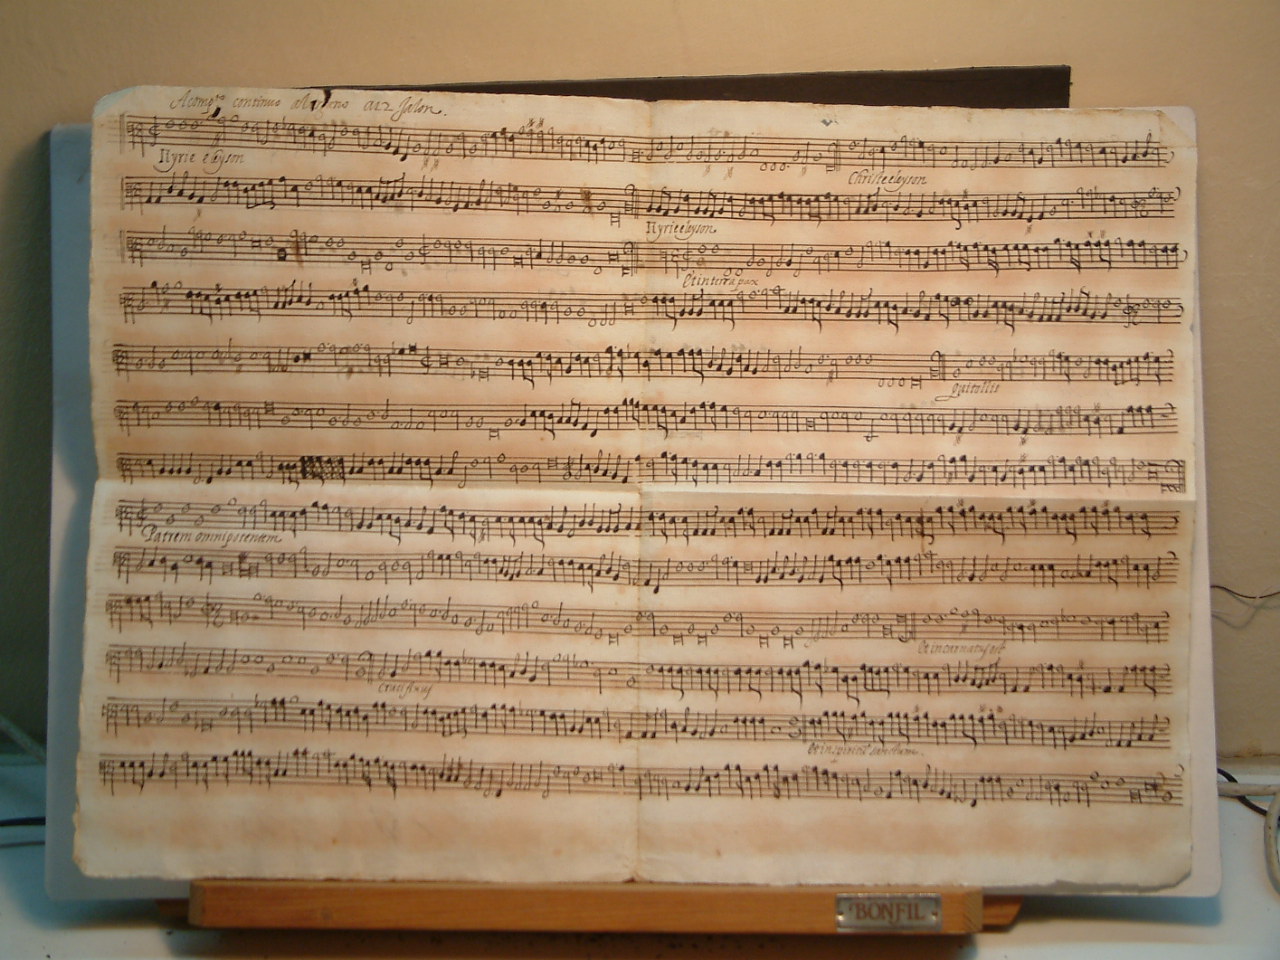 Acomp.to continuo al a 12 Jalon.
Kyrie eleyson
Christe eleyson
Kyrie eleyson
Et in terra pax
qui tollis
Patrem omnipotentem
Et incarnatus est
Crucifixus
Et in spiritū sanctum.
BONFIL